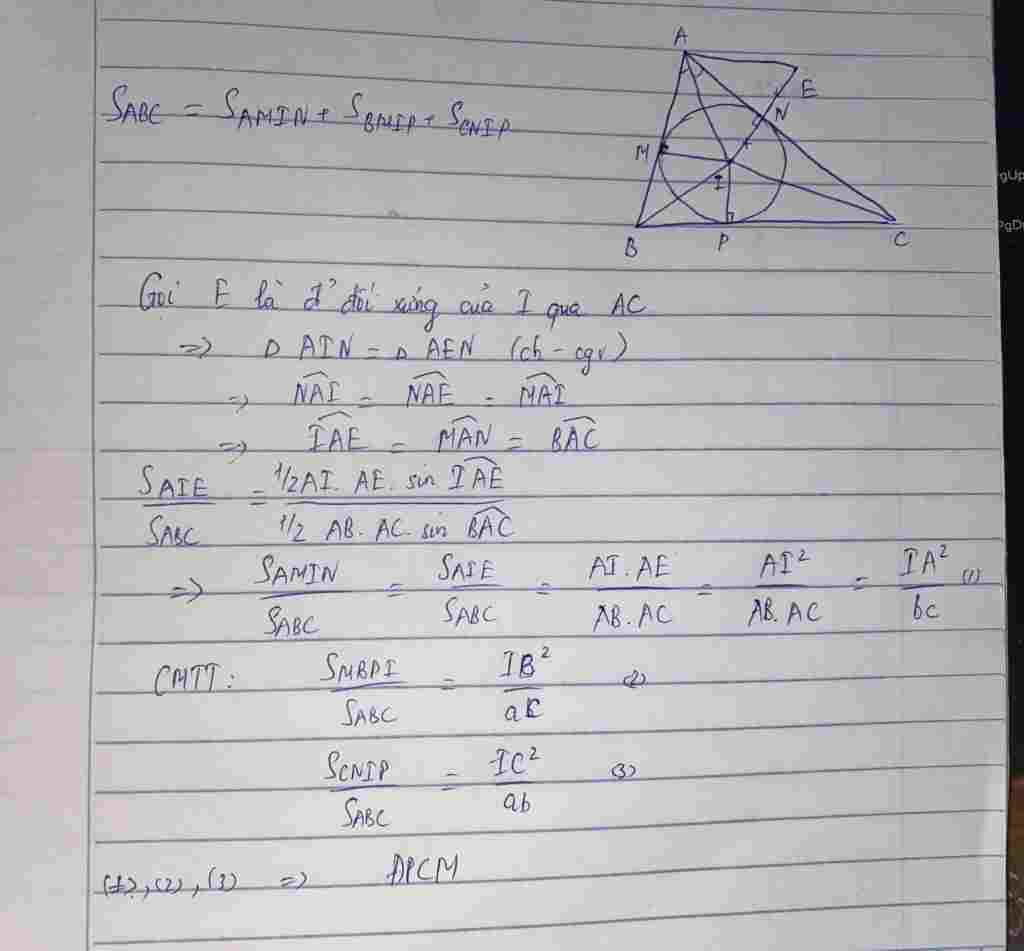 A
E
N
M
I
B
P
C
gUp
PgD
S_ABC = S_AMIN + S_BMIP + S_CNIP
Gọi E là đ' đối xứng của I qua AC
=> Δ AIN = Δ AEN (ch - cgv)
=> \widehat{NAI} = \widehat{NAE} = \widehat{MAI}
=> \widehat{IAE} = \widehat{MAN} = \widehat{BAC}
S_AIE / S_ABC = 1/2 AI. AE. sin \widehat{IAE} / 1/2 AB. AC. sin \widehat{BAC}
=> S_AMIN / S_ABC = S_AIE / S_ABC = AI. AE / AB. AC = AI² / AB. AC = IA² / bc (1)
CMTT: S_MBPI / S_ABC = IB² / ac (2)
S_CNIP / S_ABC = IC² / ab (3)
(1), (2), (3) => ĐPCM